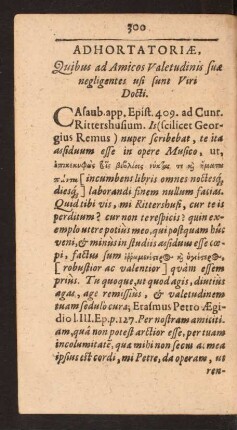 300
ADHORTATORIÆ,
Quibus ad Amicos Valetudinis suæ
negligentes usi sunt Viri
Docti.
CAsaub. app. Epist. 409. ad Cunr.
Rittershusium. Is (scilicet Geor-
gius Remus) nuper scribebat, te ita
assiduum esse in opere Musico, ut,
ἐπικεκυφὼς
[incumbent libris omnes noctesq;
diesq;] laborandi finem nullum facias.
Quid tibi vis, mi Rittershusi, cur te is
perditum? cur non terespicis? quin ex-
emplo utere potius meo, qui postquam huc
veni, & minus in studiis assiduus esse cœ-
pi, factus sum
[robustior ac valentior] quàm essem
prius. Tu quoque, ut quod agis, diutius
agas, age remissius, & valetudinem
tuam sedulo cura, Erasmus Petro Ægi-
dio l. III. Ep. p. 127. Per nostram amiciti-
am, quâ non potest arctior esse, per tuam
incolumitatē, qua mihi non secus ac mea
ipsius est cordi, mi Petre, da operam, ut
ren-